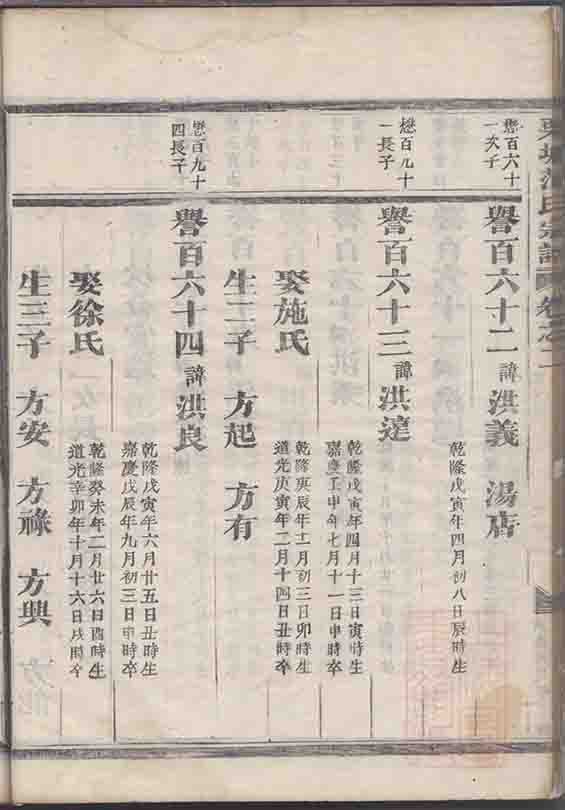 氏宗譜 卷之二
懋百六十
一次子
譽百六十二 諱洪義 湯店
乾隆戊寅年四月初八日辰時生
懋百九十
一長子
譽百六十三 諱洪達
乾隆戊寅年四月十三日寅時生
嘉慶壬申年七月十一日申時卒
娶施氏
乾隆庚辰年十一月初三日卯時生
道光庚寅年二月十四日丑時卒
生二子 方起 方有
懋百九十
四長子
譽百六十四 諱洪良
乾隆戊寅年六月廿五日丑時生
嘉慶戊辰年九月初三日申時卒
娶徐氏
乾隆癸未年二月廿六日酉時生
道光辛卯年十月十六日戌時卒
生三子 方安 方祿 方興